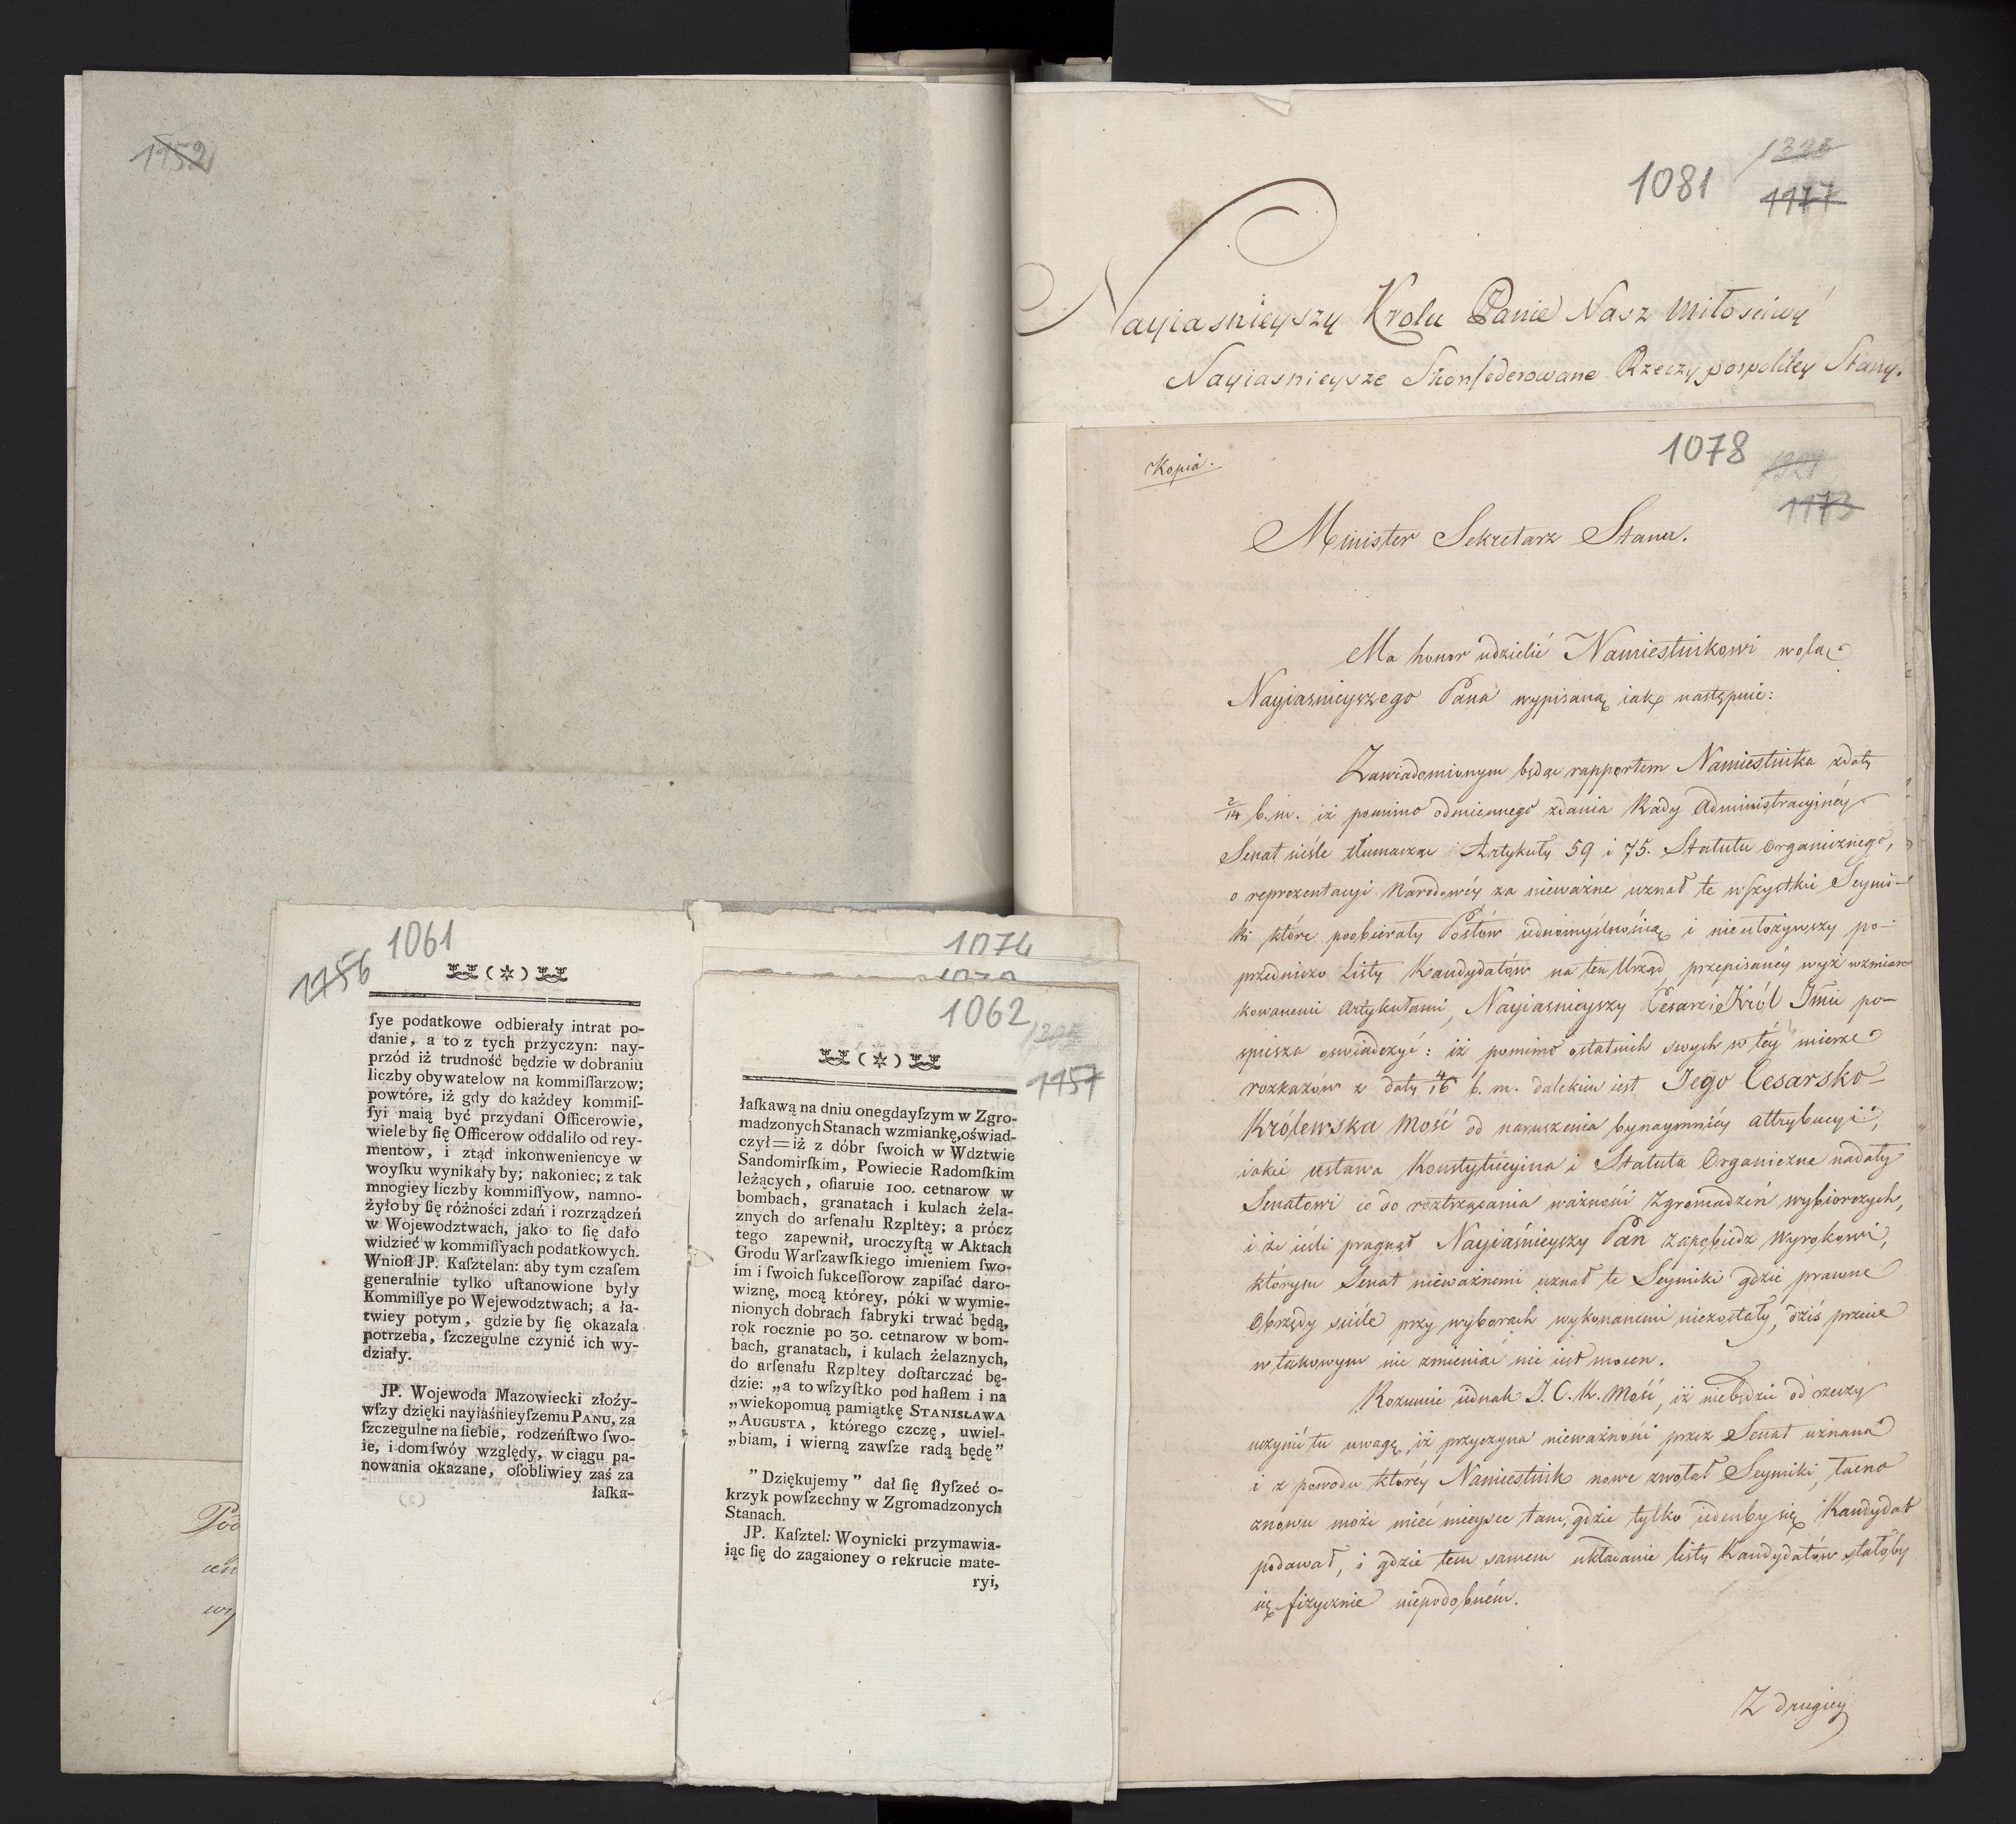 1152
Poo
cen
wy
1756
1061
(*)
ſye podatkowe odbierały intrat po-
danie, a to z tych przyczyn: nay-
przód iż trudność będzie w dobraniu
liczby obywatelow na kommiſſarzow;
powtóre, iż gdy do każdey kommiſ-
ſyi maią być przydani Officerowie,
wiele by ſię Officerow oddaliło od rey-
mentow, i ztąd inkonweniencye w
woyſku wynikały by; nakoniec; z tak
mnogiey liczby kommiſſyow, namno-
żyło by ſię różności zdań i rozrządzeń
w Wojewodztwach, jako to ſię dało
widzieć w kommiſſyach podatkowych.
Wnioſł JP. Kaſztelan: aby tym czaſem
generalnie tylko uſtanowione były
Kommiſſye po Wejewodztwach; a ła-
twiey potym, gdzie by ſię okazała
potrzeba, ſzczegulne czynić ich wy-
działy.
JP. Wojewoda Mazowiecki złoży-
wſzy dzięki nayiaśnieyſzemu PANU, za
ſzczegulne na ſiebie, rodzeńſtwo ſwo-
ie, i dom ſwóy względy, w ciągu pa-
nowania okazane, oſobliwiey zaś za
łaſka-
1074
1062
1157
(*)
łaſkawą na dniu onegdayſzym w Zgro-
madzonych Stanach wzmiankę, oświad-
czył=iż z dóbr ſwoich w Wdztwie
Sandomirſkim, Powiecie Radomſkim
leżących, ofiaruie 100. cetnarow w
bombach, granatach i kulach żela-
znych do arſenału Rzpltéy; a prócz
tego zapewnił, uroczyſtą w Aktach
Grodu Warſzawſkiego imieniem ſwo-
im i ſwoich ſukceſſorow zapiſać daro-
wiznę, mocą którey, póki w wymie-
nionych dobrach fabryki trwać będą,
rok rocznie po 30. cetnarow w bom-
bach, granatach, i kulach żelaznych,
do arſenału Rzpltey doſtarczać bę-
dzie: „a to wſzyſtko pod haſłem i na
„wiekopomuą pamiątkę STANISŁAWA
„AUGUSTA, którego czczę, uwiel-
„biam, i wierną zawſze radą będę”
”Dziękujemy” dał ſię ſłyſzeć o-
krzyk powſzechny w Zgromadzonych
Stanach.
JP. Kaſztel: Woynicki przymawia-
iąc ſię do zagaioney o rekrucie mate-
ryi,
1081
1177
Nayiasnieyszy Krolu Panie Nasz Miłosciwy
Nayiasnieysze Skonfederowane Rzeczypospolitey Stany.
Kopia.
1078
1173
Minister Sekretarz Stanu.
Ma honor udzielić Namiestnikowi wolą
Nayiasnieyszego Pana wypisaną iak następuie:
Zawiadomionym będąc rapportem Namiestnika z daty
2/14 b.m. iż pomimo odmiennego zdania Rady Administracyinéy
Senat ściśle tłumacząc Artykuły 59 i 75. Statutu Organicznego,
o reprezentacyi Narodowéy za nieważne uznał te wszystkie Seymi-
ki które poobierały Posłów iednomyślnością i nieułożywszy po-
przedniczo Listy Kandydatów na ten Urząd przepisanéy wyż wzmian-
kowanemi Artykułami, Nayiasnieyszy Cesarz i Król Jmć po-
spiesza oswiadczyć: iż pomimo ostatnich swych w téy mierze
rozkazów z daty 4/16 b. m. dalekim iest Jego Cesarsko-
Królewska Mość od naruszenia bynaymniéy attrybucyi,
iakie ustawa Konstytucyina i Statuta Organiczne nadały
Senatowi co do roztrząsania ważności Zgromadzeń wybiorczych,
i że iesli pragnął Nayiaśnieyszy Pan zapobiedz wyrokowi,
którym Senat nieważnemi uznał te Seymiki gdzie prawne
Obrzędy ściśle przy wyborach wykonanemi niezostały, dziś przecie
w takowym nic zmieniać nie iest mocen.
Rozumie iednak J. C. K. Mość, iż niebędzie od rzeczy
uczynić tu uwagę, iż przyczyna nieważności przez Senat uznana
i z powodu któréy Namiestnik nowe zwołał Seymiki, łacno
znowu może mieć mieysce tam, gdzie tylko iedenby się Kandydat
podawał, i gdzie tem samem układanie listy Kandydatów stałoby
się fizycznie niepodobném.
Z drugiéy